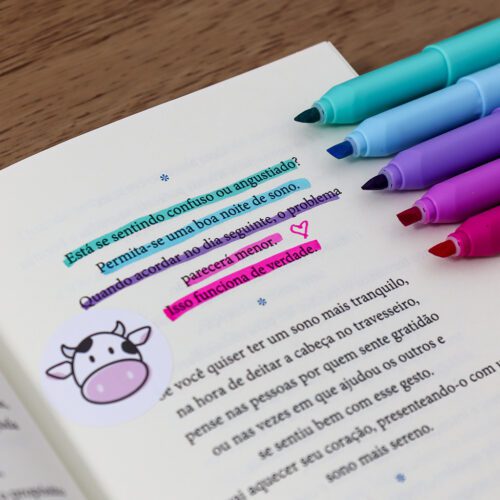 Está se sentindo confuso ou angustiado?
Permita-se uma boa noite de sono.
Quando acordar no dia seguinte, o problema
parecerá menor.
Isso funciona de verdade.
se você quiser ter um sono mais tranquilo,
na hora de deitar a cabeça no travesseiro,
pense nas pessoas por quem sente gratidão
ou nas vezes em que ajudou os outros e
se sentiu bem com esse gesto.
aquecer seu coração, presenteando-o com
sono mais sereno.
o propósito